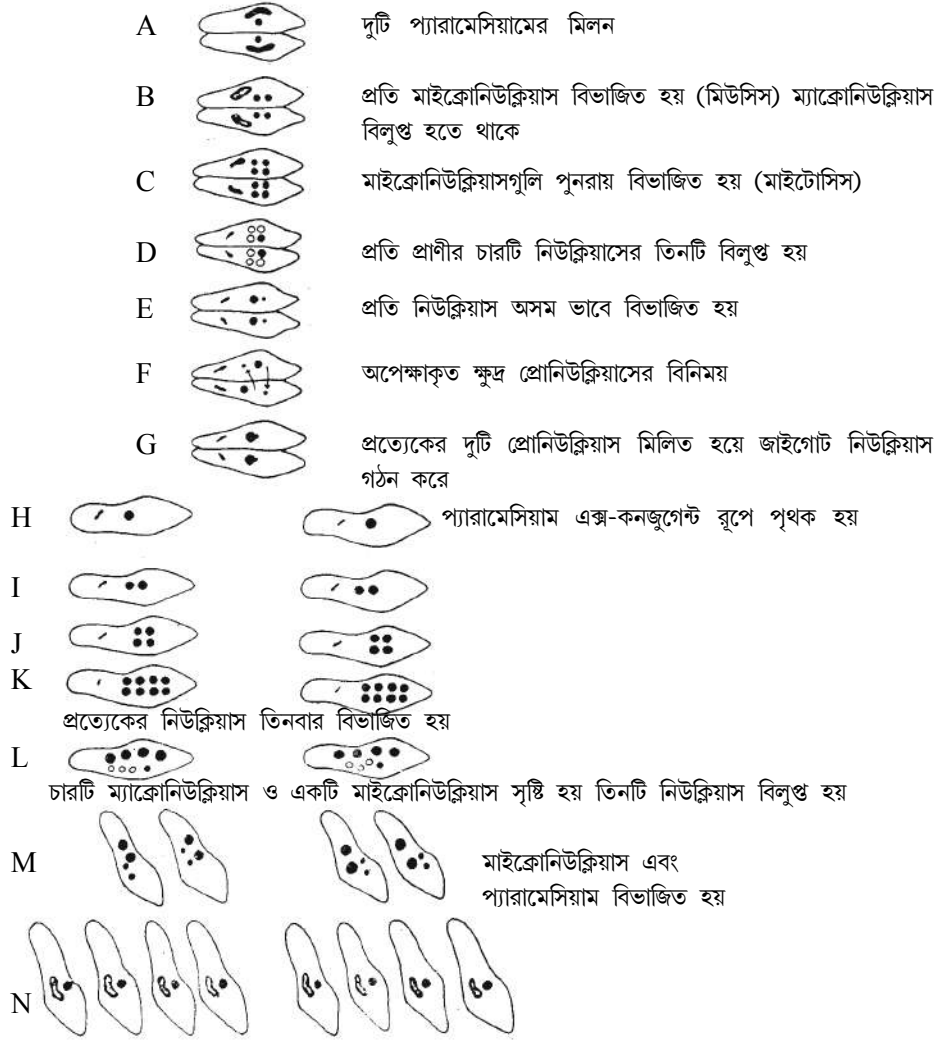 A দুটি প্যারামেসিয়ামের মিলন
B প্রতি মাইক্রোনিউক্লিয়াস বিভাজিত হয় (মিউসিস) ম্যাক্রোনিউক্লিয়াস
বিলুপ্ত হতে থাকে
C মাইক্রোনিউক্লিয়াসগুলি পুনরায় বিভাজিত হয় (মাইটোসিস)
D প্রতি প্রাণীর চারটি নিউক্লিয়াসের তিনটি বিলুপ্ত হয়
E প্রতি নিউক্লিয়াস অসম ভাবে বিভাজিত হয়
F অপেক্ষাকৃত ক্ষুদ্র প্রোনিউক্লিয়াসের বিনিময়
G প্রত্যেকের দুটি প্রোনিউক্লিয়াস মিলিত হয়ে জাইগোট নিউক্লিয়াস
গঠন করে
H প্যারামেসিয়াম এক্স-কনজুগেন্ট রূপে পৃথক হয়
I
J
K
প্রত্যেকের নিউক্লিয়াস তিনবার বিভাজিত হয়
L
চারটি ম্যাক্রোনিউক্লিয়াস ও একটি মাইক্রোনিউক্লিয়াস সৃষ্টি হয় তিনটি নিউক্লিয়াস বিলুপ্ত হয়
M মাইক্রোনিউক্লিয়াস এবং
প্যারামেসিয়াম বিভাজিত হয়
N